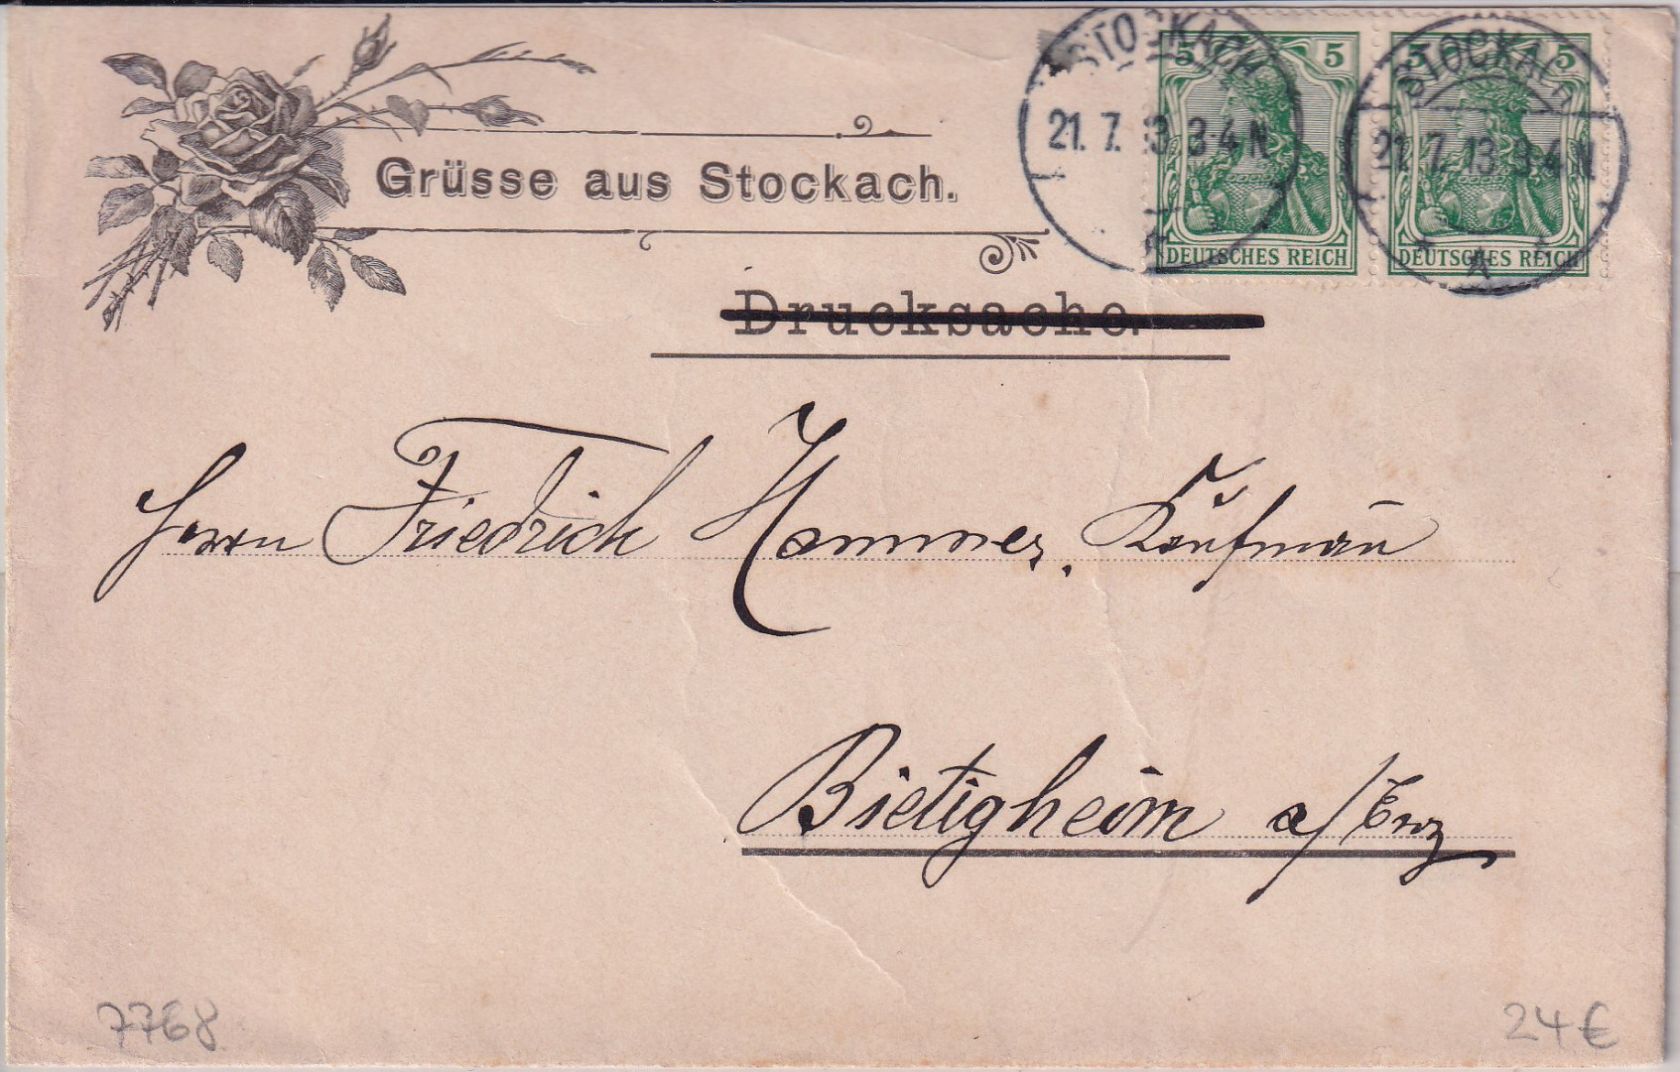 Grüsse aus Stockach.
STOCKACH
21. 7. 13 3-4 N
5 5
DEUTSCHES REICH
STOCKACH
21. 7. 13 3-4 N
* A *
5 5
DEUTSCHES REICH
Drucksache.
Herrn Friedrich Hammer, Kaufmañ
Bietigheim a/Enz
7768
24€